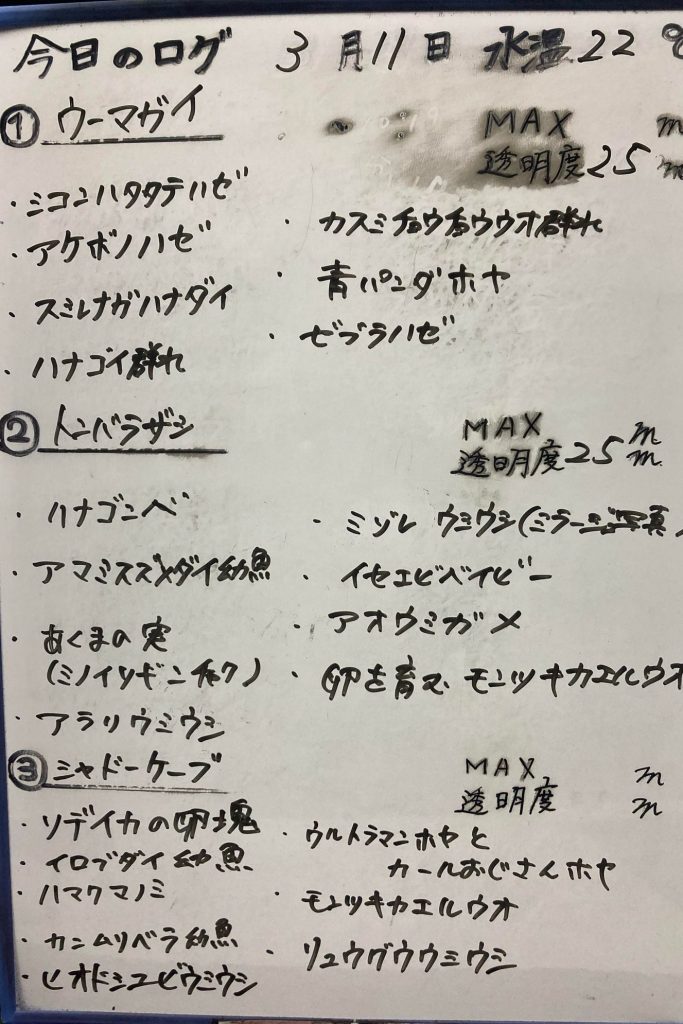 今日のログ 3月11日 水温22℃
① ウーマガイ MAX m
透明度25m
・ミコンハタタテハゼ
・アケボノハゼ
・スミレナガハナダイ
・ハナゴイ群れ
・カスミチョウチョウウオ群れ
・青パンダホヤ
・ゼブラハゼ
② トンバラザシ MAX m
透明度25m
・ハナゴンベ
・アマミスズメダイ幼魚
・あくまの実
(ミノイソギンチャク)
・アラリウミウシ
・ミゾレウミウシ(ミラージュ写真)
・イセエビベイビー
・アオウミガメ
・卵を育む モンツキカエルウオ
③ シャドーケーブ MAX m
透明度 m
・ソデイカの卵塊
・イロブダイ幼魚
・ハマクマノミ
・カンムリベラ幼魚
・ヒオドシユビウミウシ
・ウルトラマンホヤと
カールおじさんホヤ
・モンツキカエルウオ
・リュウグウウミウシ